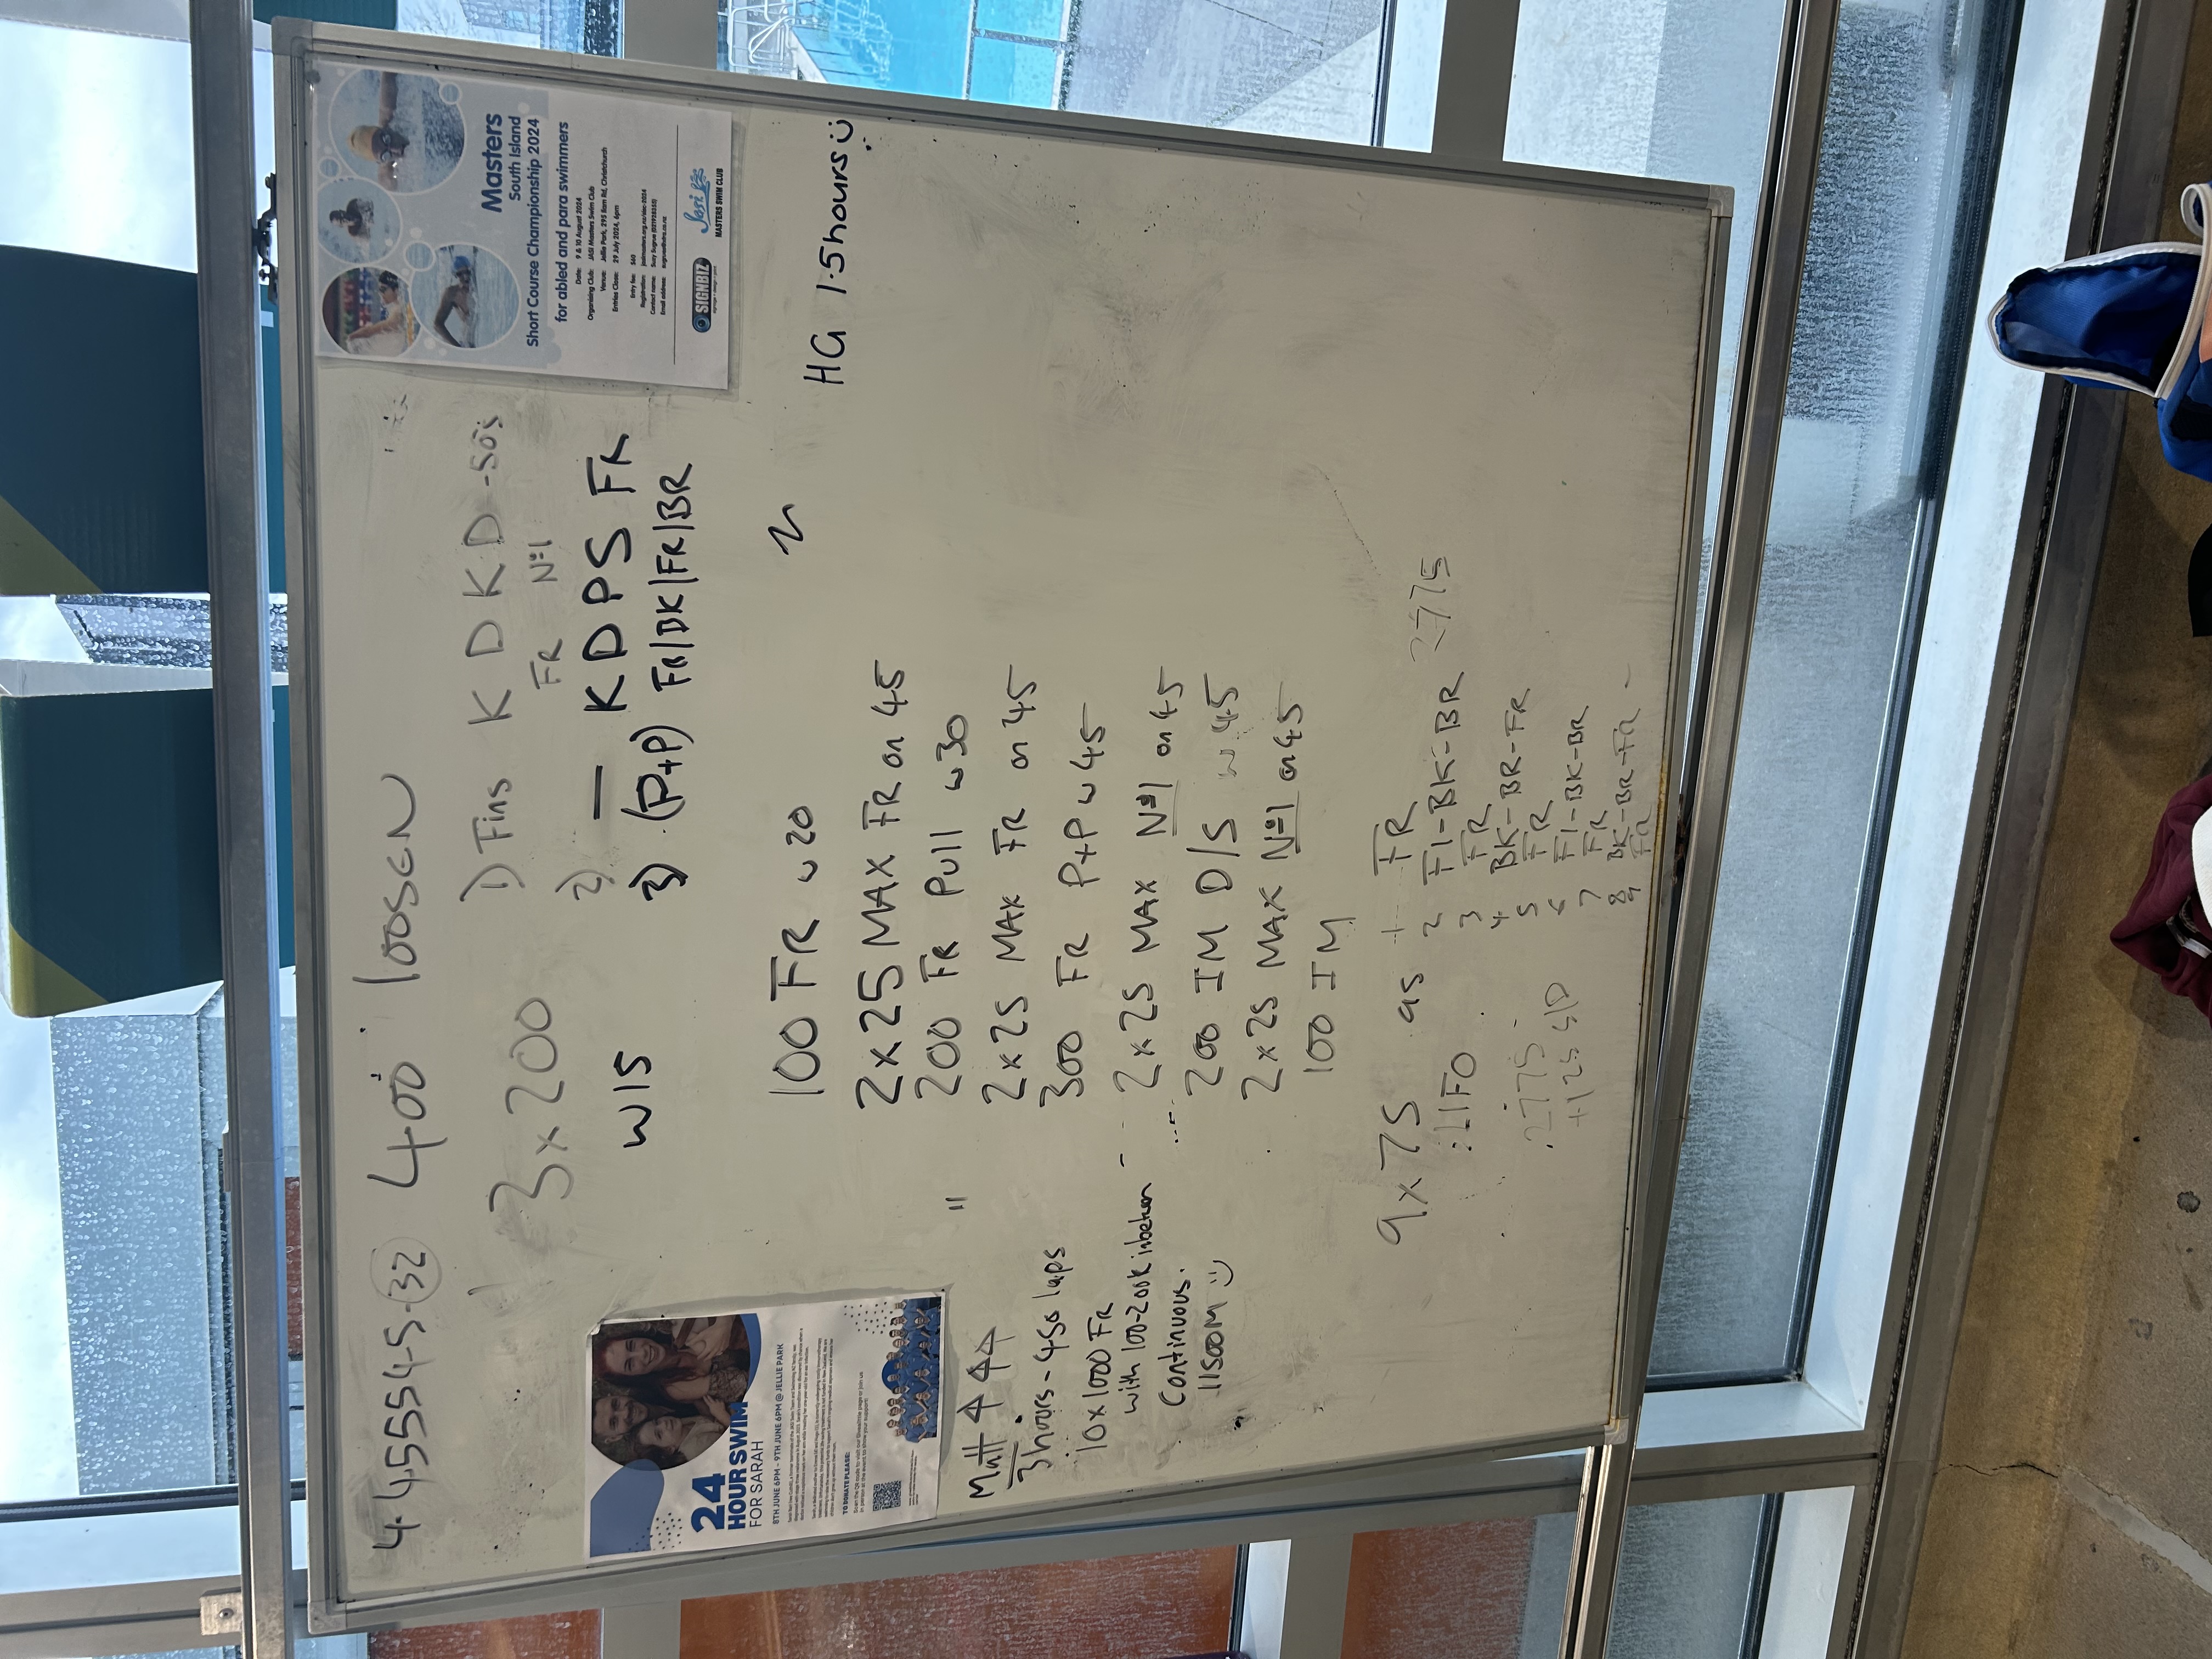 4.455545-32 400 loosen
3x200
W15
1) Fins K D K D -50's
FR No1
2) — K D P S FR
3) (P+P) FR/BK/FR/BR
Masters
South Island
Short Course Championship 2024
for abled and para swimmers
Date: 9 & 10 August 2024
Organising Club: JASI Masters Swim Club
Venue: Jellie Park, 295 Ilam Rd, Christchurch
Entries Close: 29 July 2024, 6pm
Entry fee: $60
SIGNBIZ
Jasi
MASTERS SWIM CLUB
HG 1.5hours
24
HOUR SWIM
FOR SARAH
8TH JUNE 6PM - 9TH JUNE 6PM @ JELLIE PARK
TO DONATE PLEASE:
100 FR w20
2x25 MAX FR on 45
200 FR Pull w30
2x25 MAX FR on 45
300 FR P+P w45
2x25 MAX No1 on 45
200 IM D/S w45
2x25 MAX No1 on 45
100 IM
Matt
3hours - 450 laps
10x1000 FR
with 100-200k inbetween
Continuous.
11500M :)
9 x 75 as 1 FR
:LIFO
2 FI-BK-BR
3 FR
4 BK-BR-FR
5 FR
6 FI-BK-BR
7 FR
8 BK-BR-FR
9 FR
2775
2775
+125 S/D